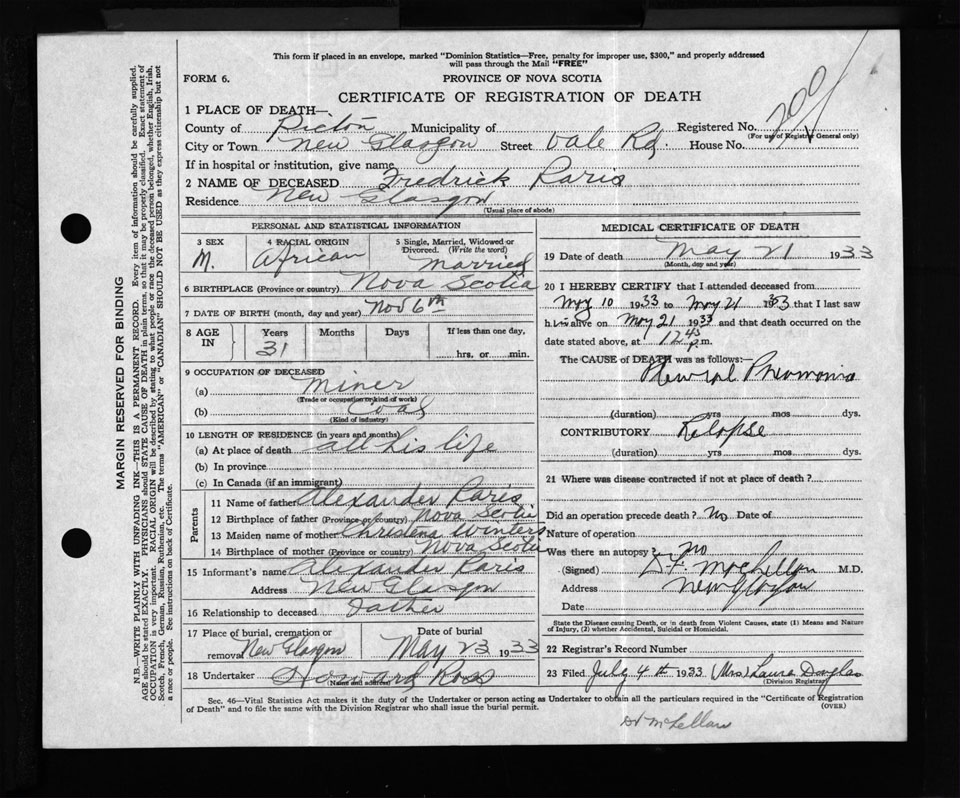 This form if placed in an envelope, marked "Dominion Statistics—Free, penalty for improper use, $300," and properly addressed
will pass through the Mail "FREE"
FORM 6. PROVINCE OF NOVA SCOTIA
CERTIFICATE OF REGISTRATION OF DEATH
1 PLACE OF DEATH—
County of Pictou Municipality of Registered No.
(For use of Registrar General only)
City or Town New Glasgow Street Vale Rd. House No.
If in hospital or institution, give name
2 NAME OF DECEASED Fredrick Paris
Residence New Glasgow
(Usual place of abode)
PERSONAL AND STATISTICAL INFORMATION
3 SEX 4 RACIAL ORIGIN 5 Single, Married, Widowed or
Divorced. (Write the word)
M. African Married
6 BIRTHPLACE (Province or country) Nova Scotia
7 DATE OF BIRTH (month, day and year) Nov 6th
8 AGE IN Years Months Days If less than one day,
31 hrs. or min.
9 OCCUPATION OF DECEASED
(a) Miner
(Trade or occupation or kind of work)
(b) Coal
(Kind of industry)
10 LENGTH OF RESIDENCE (in years and months)
(a) At place of death all his life
(b) In province
(c) In Canada (if an immigrant)
Parents
11 Name of father Alexander Paris
12 Birthplace of father (Province or country) Nova Scotia
13 Maiden name of mother Christena Winters
14 Birthplace of mother (Province or country) Nova Scotia
15 Informant's name Alexander Paris
Address New Glasgow
16 Relationship to deceased Father
17 Place of burial, cremation or Date of burial
removal New Glasgow May 23 1933
18 Undertaker Howard Ross
(Name and address)
MEDICAL CERTIFICATE OF DEATH
19 Date of death May 21 1933
(Month, day and year)
20 I HEREBY CERTIFY that I attended deceased from
May 10 1933 to May 21 1933 that I last saw
him alive on May 21 1933 and that death occurred on the
date stated above, at 12 45 p.m.
The CAUSE of DEATH was as follows:—
Pneumonia
(duration) yrs mos dys.
CONTRIBUTORY Relapse
(duration) yrs mos dys.
21 Where was disease contracted if not at place of death?
Did an operation precede death? No Date of
Nature of operation
Was there an autopsy? No
(Signed) McLellan M.D.
Address New Glasgow
Date
State the Disease causing Death, or in death from Violent Causes, state (1) Means and Nature
of Injury, (2) whether Accidental, Suicidal or Homicidal.
22 Registrar's Record Number
23 Filed July 4th 1933 (Mrs) Laura Douglas
Division Registrar
Sec. 46—Vital Statistics Act makes it the duty of the Undertaker or person acting as Undertaker to obtain all the particulars required in the "Certificate of Registration
of Death" and to file the same with the Division Registrar who shall issue the burial permit.
(OVER)
Dr McLellan
MARGIN RESERVED FOR BINDING
N.B.—WRITE PLAINLY WITH UNFADING INK—THIS IS A PERMANENT RECORD. Every item of information should be carefully supplied.
AGE should be stated EXACTLY. PHYSICIANS should STATE CAUSE OF DEATH in plain terms, so that it may be properly classified. Exact statement of
OCCUPATION is very important. RACIAL ORIGIN will be described by stating to what people or race the deceased person belonged, whether English, Irish,
Scotch, French, German, Russian, Ruthenian, etc. The terms "AMERICAN" or "CANADIAN" SHOULD NOT BE USED as they express citizenship but not
a race or people. See instructions on back of Certificate.